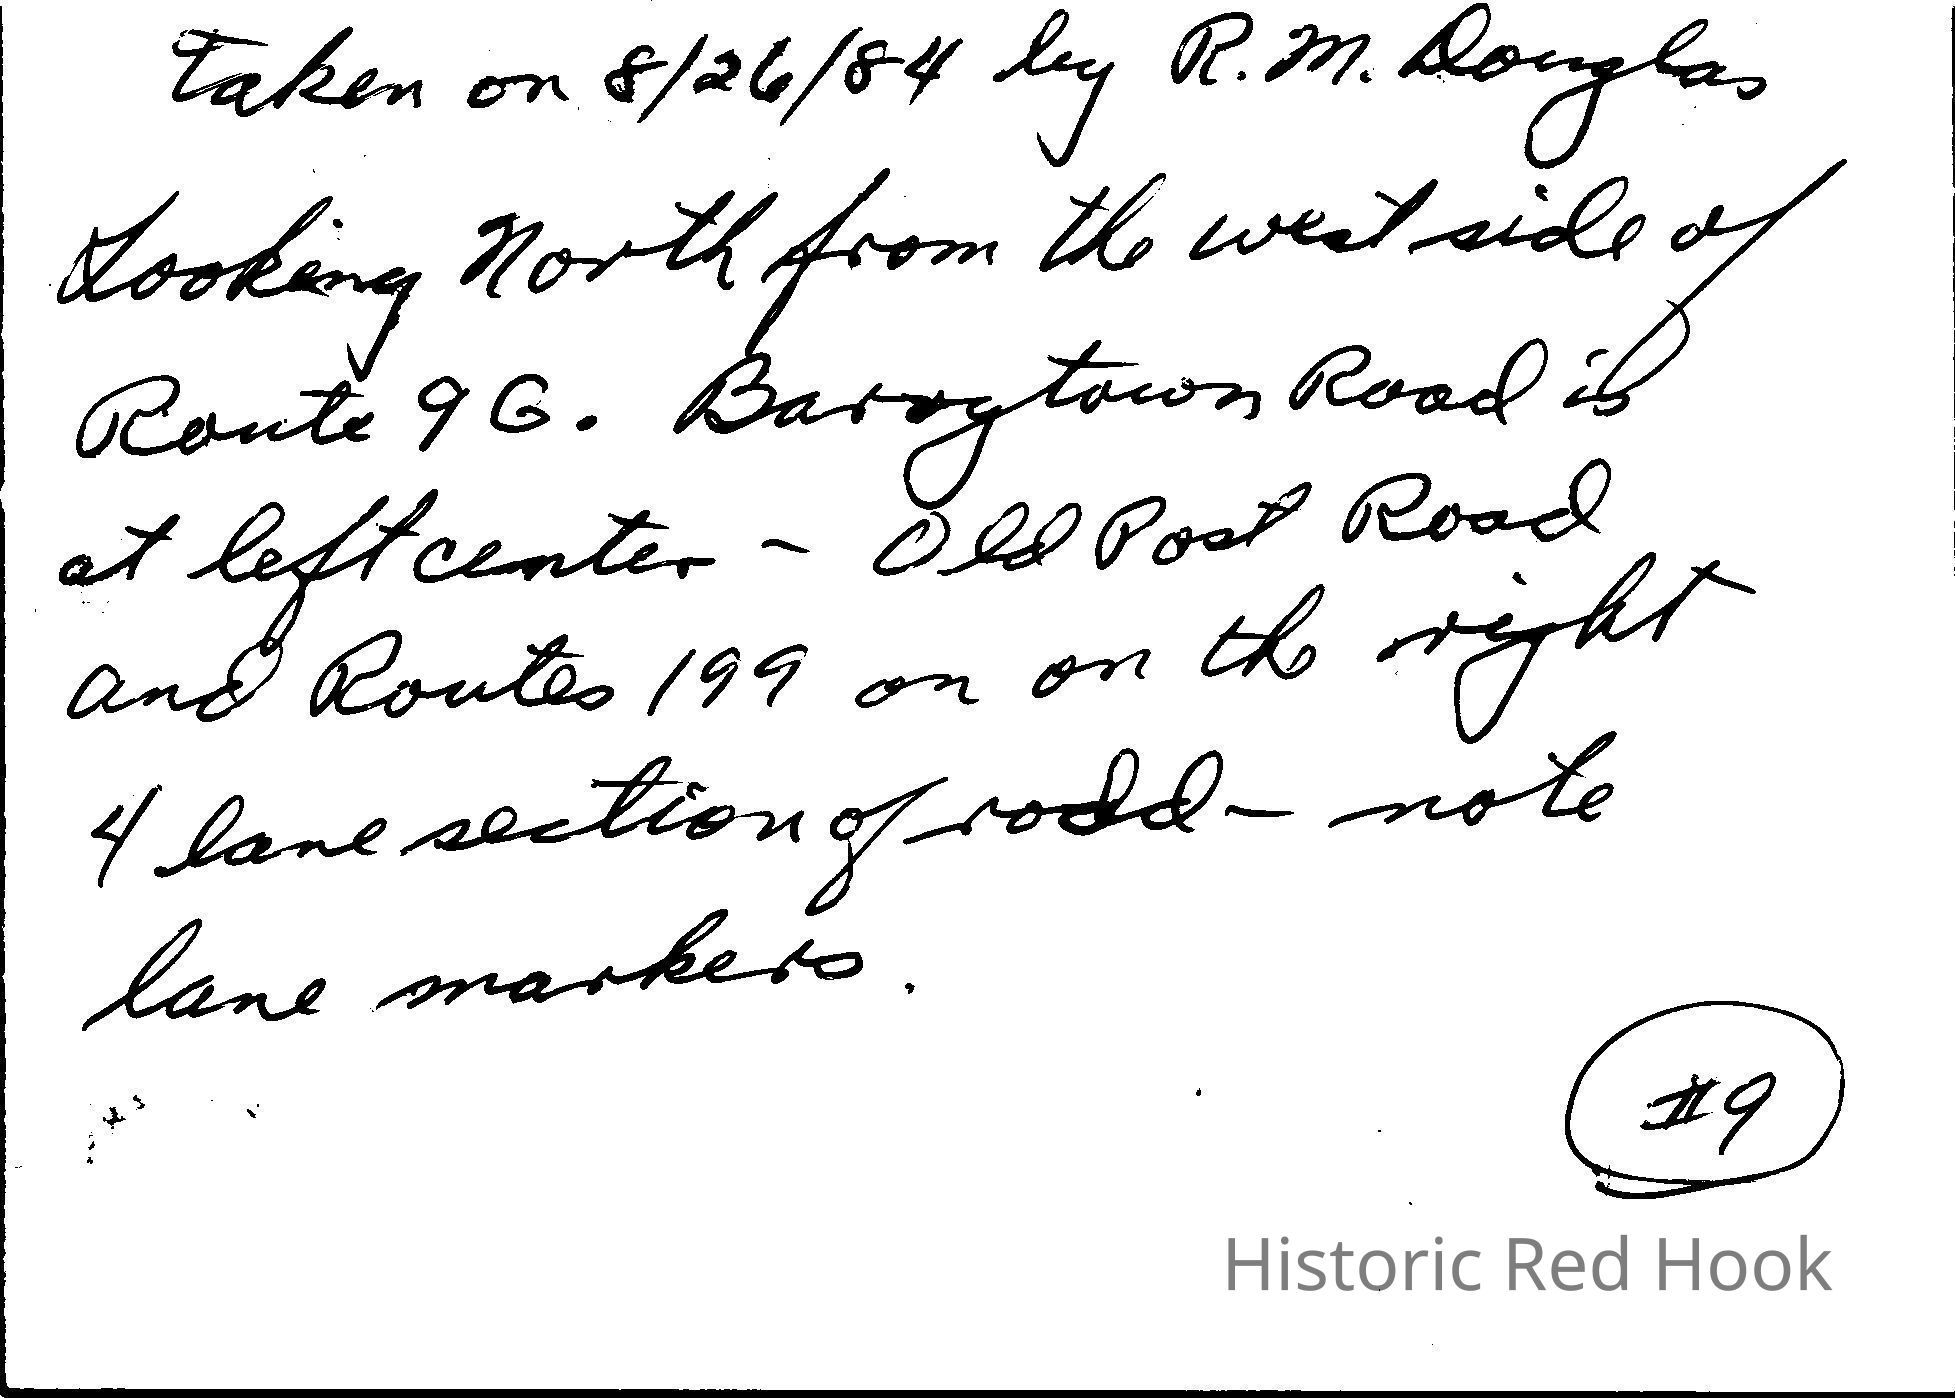 taken on 8/26/84 by R.M. Douglas
Looking North from the west side of
Route 9G. Barrytown Road is
at left center - Old Post Road
and Routes 199 on on the right
4 lane section of road - note
lane markers.
#9
Historic Red Hook